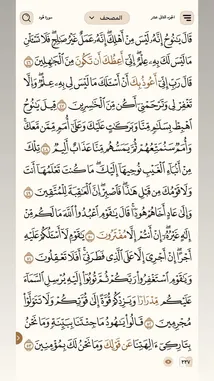 الجزء الثاني عشر
المصحف
سورة هود
قَالَ يَٰنُوحُ إِنَّهُۥ لَيۡسَ مِنۡ أَهۡلِكَۖ إِنَّهُۥ عَمَلٌ غَيۡرُ صَٰلِحٖۖ فَلَا تَسۡـَٔلۡنِ
مَا لَيۡسَ لَكَ بِهِۦ عِلۡمٌۖ إِنِّيٓ أَعِظُكَ أَن تَكُونَ مِنَ ٱلۡجَٰهِلِينَ ٤٦
قَالَ رَبِّ إِنِّيٓ أَعُوذُ بِكَ أَنۡ أَسۡـَٔلَكَ مَا لَيۡسَ لِي بِهِۦ عِلۡمٞۖ وَإِلَّا
تَغۡفِرۡ لِي وَتَرۡحَمۡنِيٓ أَكُن مِّنَ ٱلۡخَٰسِرِينَ ٤٧ قِيلَ يَٰنُوحُ
ٱهۡبِطۡ بِسَلَٰمٖ مِّنَّا وَبَرَكَٰتٍ عَلَيۡكَ وَعَلَىٰٓ أُمَمٖ مِّمَّن مَّعَكَۚ
وَأُمَمٞ سَنُمَتِّعُهُمۡ ثُمَّ يَمَسُّهُم مِّنَّا عَذَابٌ أَلِيمٞ ٤٨ تِلۡكَ
مِنۡ أَنۢبَآءِ ٱلۡغَيۡبِ نُوحِيهَآ إِلَيۡكَۖ مَا كُنتَ تَعۡلَمُهَآ أَنتَ
وَلَا قَوۡمُكَ مِن قَبۡلِ هَٰذَاۖ فَٱصۡبِرۡۖ إِنَّ ٱلۡعَٰقِبَةَ لِلۡمُتَّقِينَ ٤٩
وَإِلَىٰ عَادٍ أَخَاهُمۡ هُودٗاۚ قَالَ يَٰقَوۡمِ ٱعۡبُدُواْ ٱللَّهَ مَا لَكُم مِّنۡ
إِلَٰهٍ غَيۡرُهُۥٓۖ إِنۡ أَنتُمۡ إِلَّا مُفۡتَرُونَ ٥٠ يَٰقَوۡمِ لَآ أَسۡـَٔلُكُمۡ عَلَيۡهِ
أَجۡرًاۖ إِنۡ أَجۡرِيَ إِلَّا عَلَى ٱلَّذِي فَطَرَنِيٓۚ أَفَلَا تَعۡقِلُونَ ٥١
وَيَٰقَوۡمِ ٱسۡتَغۡفِرُواْ رَبَّكُمۡ ثُمَّ تُوبُوٓاْ إِلَيۡهِ يُرۡسِلِ ٱلسَّمَآءَ
عَلَيۡكُم مِّدۡرَارٗا وَيَزِدۡكُمۡ قُوَّةً إِلَىٰ قُوَّتِكُمۡ وَلَا تَتَوَلَّوۡاْ
مُجۡرِمِينَ ٥٢ قَالُواْ يَٰهُودُ مَا جِئۡتَنَا بِبَيِّنَةٖ وَمَا نَحۡنُ
بِتَارِكِيٓ ءَالِهَتِنَا عَن قَوۡلِكَ وَمَا نَحۡنُ لَكَ بِمُؤۡمِنِينَ ٥٣
٢٢٧